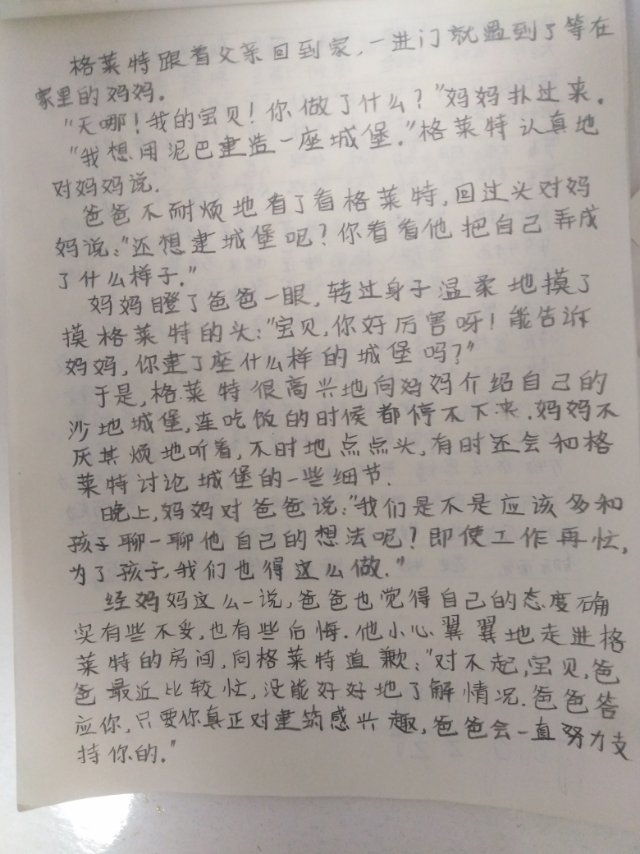 格莱特跟着父亲回到家,一进门就遇到了等在
家里的妈妈。
"天哪!我的宝贝!你做了什么?"妈妈扑过来。
"我想用泥巴建造一座城堡。"格莱特认真地
对妈妈说.
爸爸不耐烦地看了看格莱特,回过头对妈
妈说:"还想建城堡呢?你看看他把自己弄成
了什么样子."
妈妈瞪了爸爸一眼,转过身子温柔地摸了
摸格莱特的头:"宝贝,你好厉害呀!能告诉
妈妈,你建了座什么样的城堡吗?"
于是,格莱特很高兴地向妈妈介绍自己的
沙地城堡,连吃饭的时候都停不下来.妈妈不
厌其烦地听着,不时地点点头,有时还会和格
莱特讨论城堡的一些细节.
晚上,妈妈对爸爸说:"我们是不是应该多和
孩子聊一聊他自己的想法呢?即使工作再忙,
为了孩子,我们也得这么做."
经妈妈这么一说,爸爸也觉得自己的态度确
实有些不妥,也有些后悔.他小心翼翼地走进格
莱特的房间,向格莱特道歉:"对不起,宝贝,爸
爸最近比较忙,没能好好地了解情况.爸爸答
应你,只要你真正对建筑感兴趣,爸爸会一直努力支
持你的."